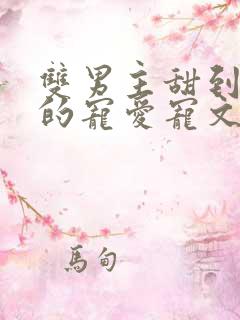 雙男主甜到
的寵愛寵文
馬甸